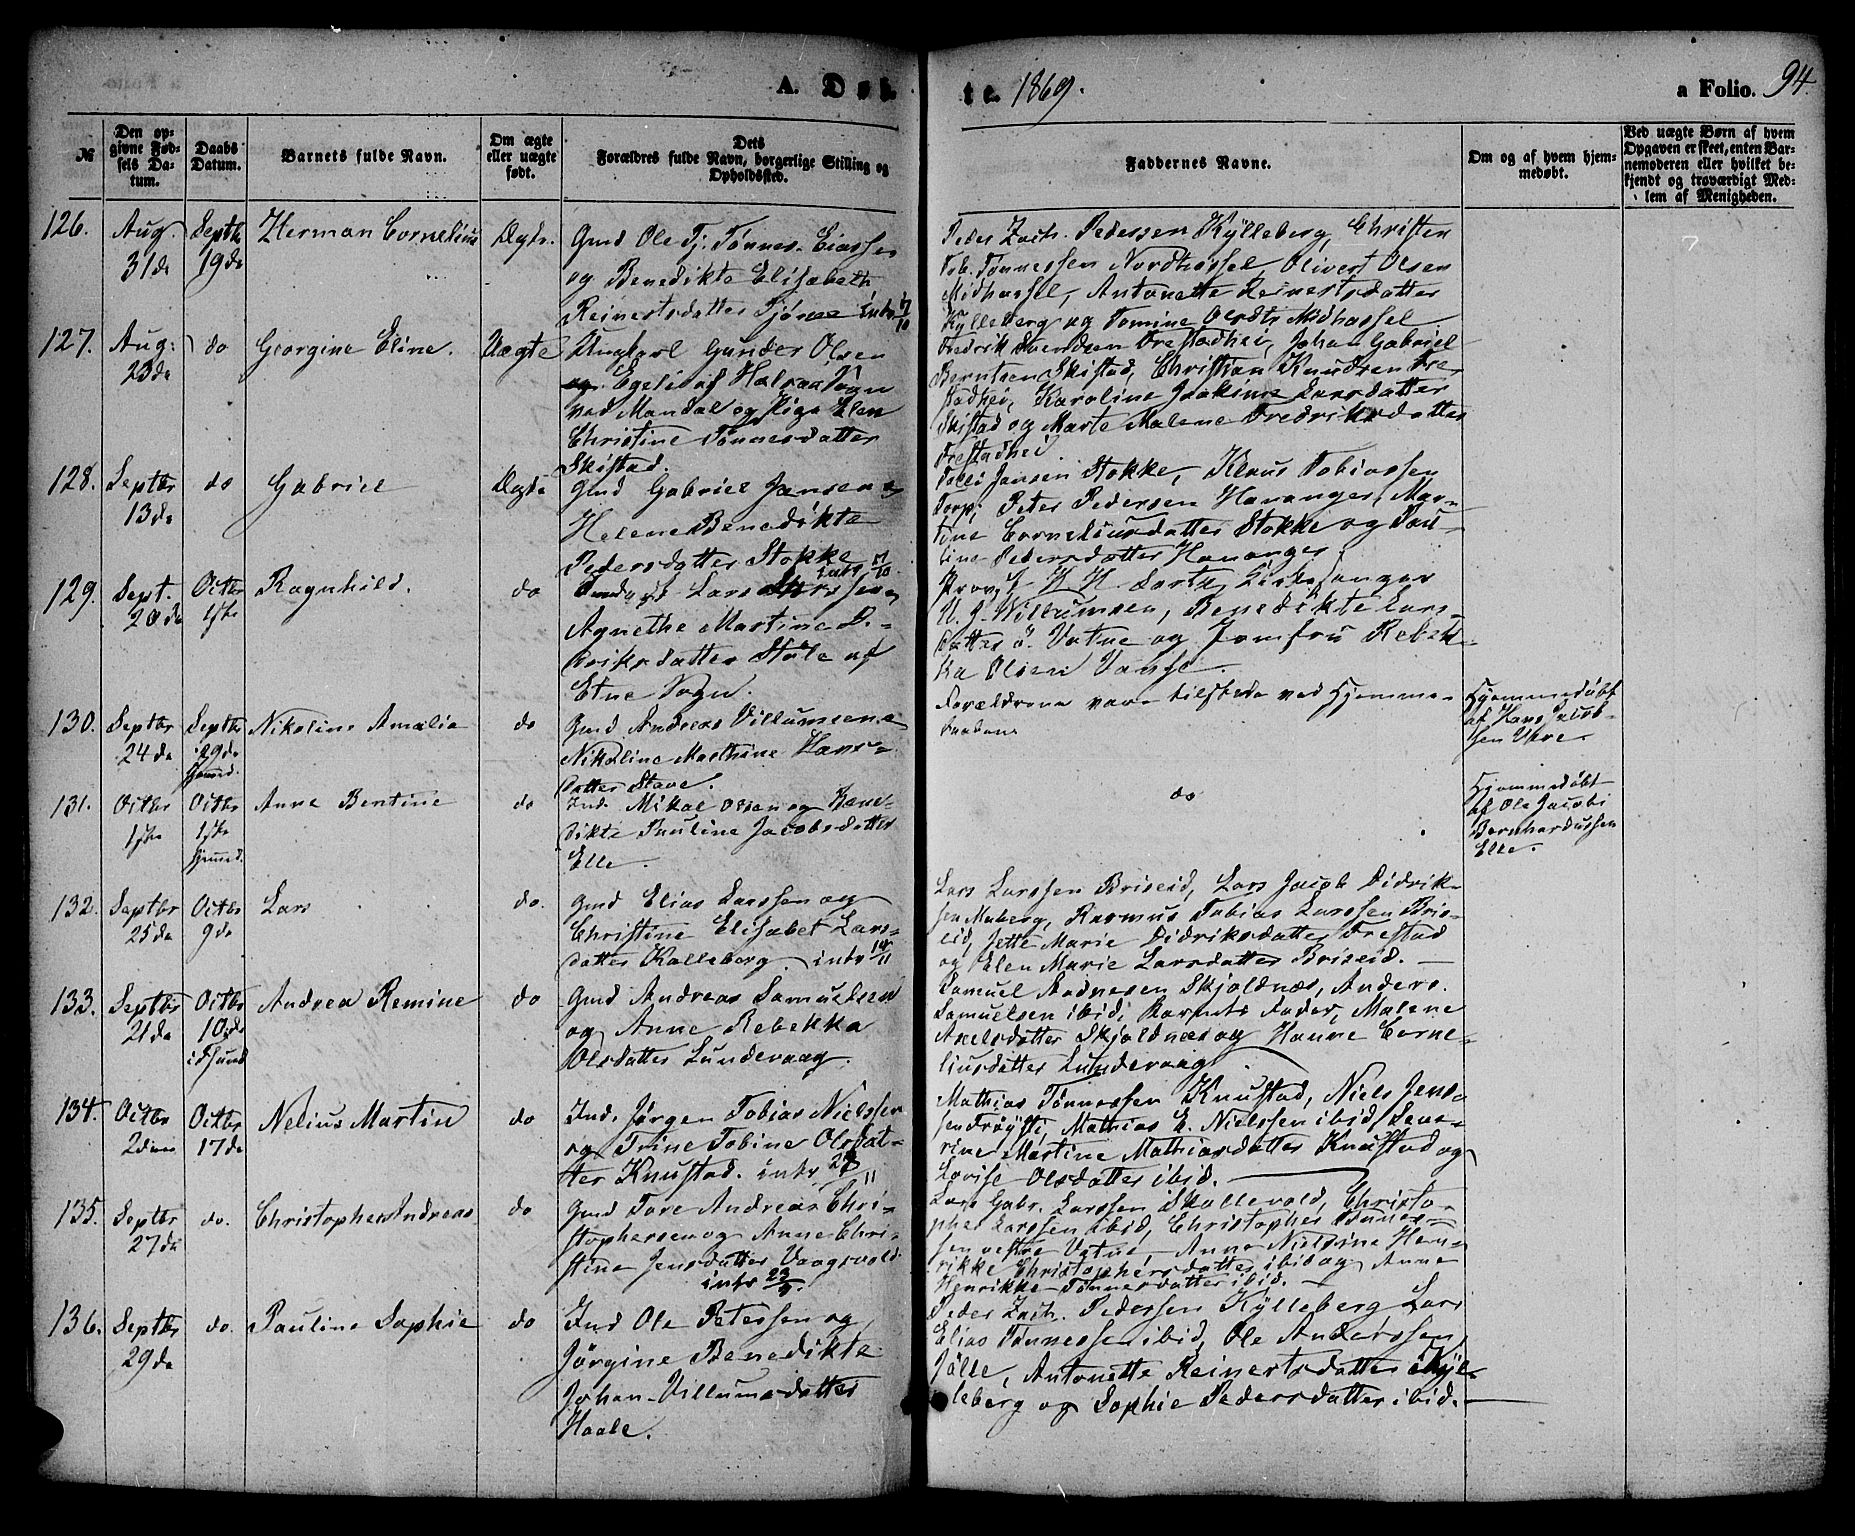 A. Døb
te. 1869.
a Folio. 94.
№
Den op-
givne Fød-
sels Da-
tum.
Daabs
Datum.
Barnets fulde Navn.
Om ægte
eller uægte
født.
Dets
Forældres fulde Navn, borgerlige Stilling og
Opholdssted.
Faddernes Navne.
Om og af hvem hjem-
medøbt.
Ved uægte Børn af hvem
Opgaven er skeet, enten Bar-
nemoderen eller hvilket be-
kjendt og troværdigt Med-
lem af Menigheden.
126.
Aug.
31de
Septbr
19de
Herman Cornelius
Ægte.
Gmd Ole Tj. Tønnes.
og Benedikte Elisabeth
Reinertsdatter Tjørve intr
Peder Zach. Pedersen Kylleberg, Christen
Tob. Tønnessen Nordhassel, Olivert Olsen
Midhassel, Antonette Reinertsdatter
Kylleberg og Tomine Olsdtr Midhassel
127.
Aug.
23de
do
Georgine Eline.
Uægte
Ungkarl Gunder Olsen
Egeli af Halsaa Sogn
ved Mandal og Pige Elen
Christine Tønnesdatter
Skistad.
Fredrik Svendsen Frestadhei, Johan Gabriel
Berntsen Skistad, Christian Knudsen Fre-
stadhei, Karoline Joakime Larsdatter
Skistad og Marte Malene Fredriksdatter
Frestadhei.
128.
Septbr
13de
do
Gabriel
Ægte
Gmd Gabriel Jansen
Helene Benedikte
Pedersdatter Stokke
intr 17/10
Jansen Stokke, Klaus Tobiassen
Torp, Peter Pedersen Hananger, Mar-
tine Corneliusdatter Stokke og Pau-
line Pedersdatter Hananger.
129.
Sept.
20de
Octbr
1ste
Ragnhild.
do
Lars
Agnethe Martine D-
driksdatter Støle af
Etne Sogn.
Provst H H Kirkesanger
N. J. Willumsen, Benedikte Lars-
datter ø. Vatne og Jomfru Rebek-
ka Olsen Vanse.
130.
Septbr
24de
Septbr
29de
hjemmed.
Nikoline Amalie
do
Gmd Andreas Villumsen
Nikoline Marthine Hans-
datter Stave.
Forældrene vare tilstede ved Hjemme-
daaben
Hjemmedøbt
af Hans Jacob-
sen Vere.
131.
Octbr
1ste
Octbr
1ste
hjemmed.
Anne Bertine
do
Ind. Mikal Olsen og Bene-
dikte Pauline Jacobsdatter
Elle.
do
Hjemmedøbt
af Ole Jacob
Bernhardussen
Elle.
132.
Septbr
25de
Octbr
9de
Lars
do.
Gmd Elias Larssen og
Christine Elisabet Lars-
datter Kalleberg. intr 14/11
Lars Larssen Briseid, Lars Jacob Didrik-
sen Maberg, Rasmus Tobias Larssen Bris-
eid, Jette Marie Didriksdatter Frestad
og Elen Marie Larsdatter Briseid.
133.
Septbr
21de
Octbr
10de
i Fsund
Andrea Remine
do
Gmd Andreas Samuelsen
og Anne Rebekka
Olsdatter Lundevaag.
Samuel Aadnesen Skjoldnæs, Anders
Samuelsen ibid, Barnets Fader, Malene
Axelsdatter Skjoldnæs og Hanne Corne-
liusdatter Lundevaag.
134.
Octbr
2den
Octbr
17de
Nelius Martin
do
Ind. Jørgen Tobias Nielssen
og Trine Tobine Olsdat-
ter Knustad. intr
Mathias Tønnessen Knustad, Niels Jens-
sen Røysti, Mathias E. Nielssen ibid, Seve-
rine Martine Mathiasdatter Knustad og
Lovise Olsdatter ibid.
135.
Septbr
27de
do.
Christopher Andreas
do
Gmd Tore Andreas Chri-
stophersen og Anne Chri-
stine Jensdatter Vaagsvold
intr
Lars Gabr. Larssen Skollevold, Christo-
pher Larssen ibid, Christopher Tønnes-
sen vestre Vatne, Anne Nielsine Hen-
rikke Christophersdatter ibid og Anne
Henrikke Tønnesdatter ibid.
136.
Septbr
29de
do.
Pauline Sophie
do
Ind Ole Petersen og
Jørgine Benedikte
Johan-Villumsdatter
Haale.
Peder Zach. Pedersen Kylleberg, Lars
Elias Tønnessen ibid, Ole Anderssen
Jølle, Antonette Reinertsdatter Kyl-
leberg og Sophie Pedersdatter ibid.